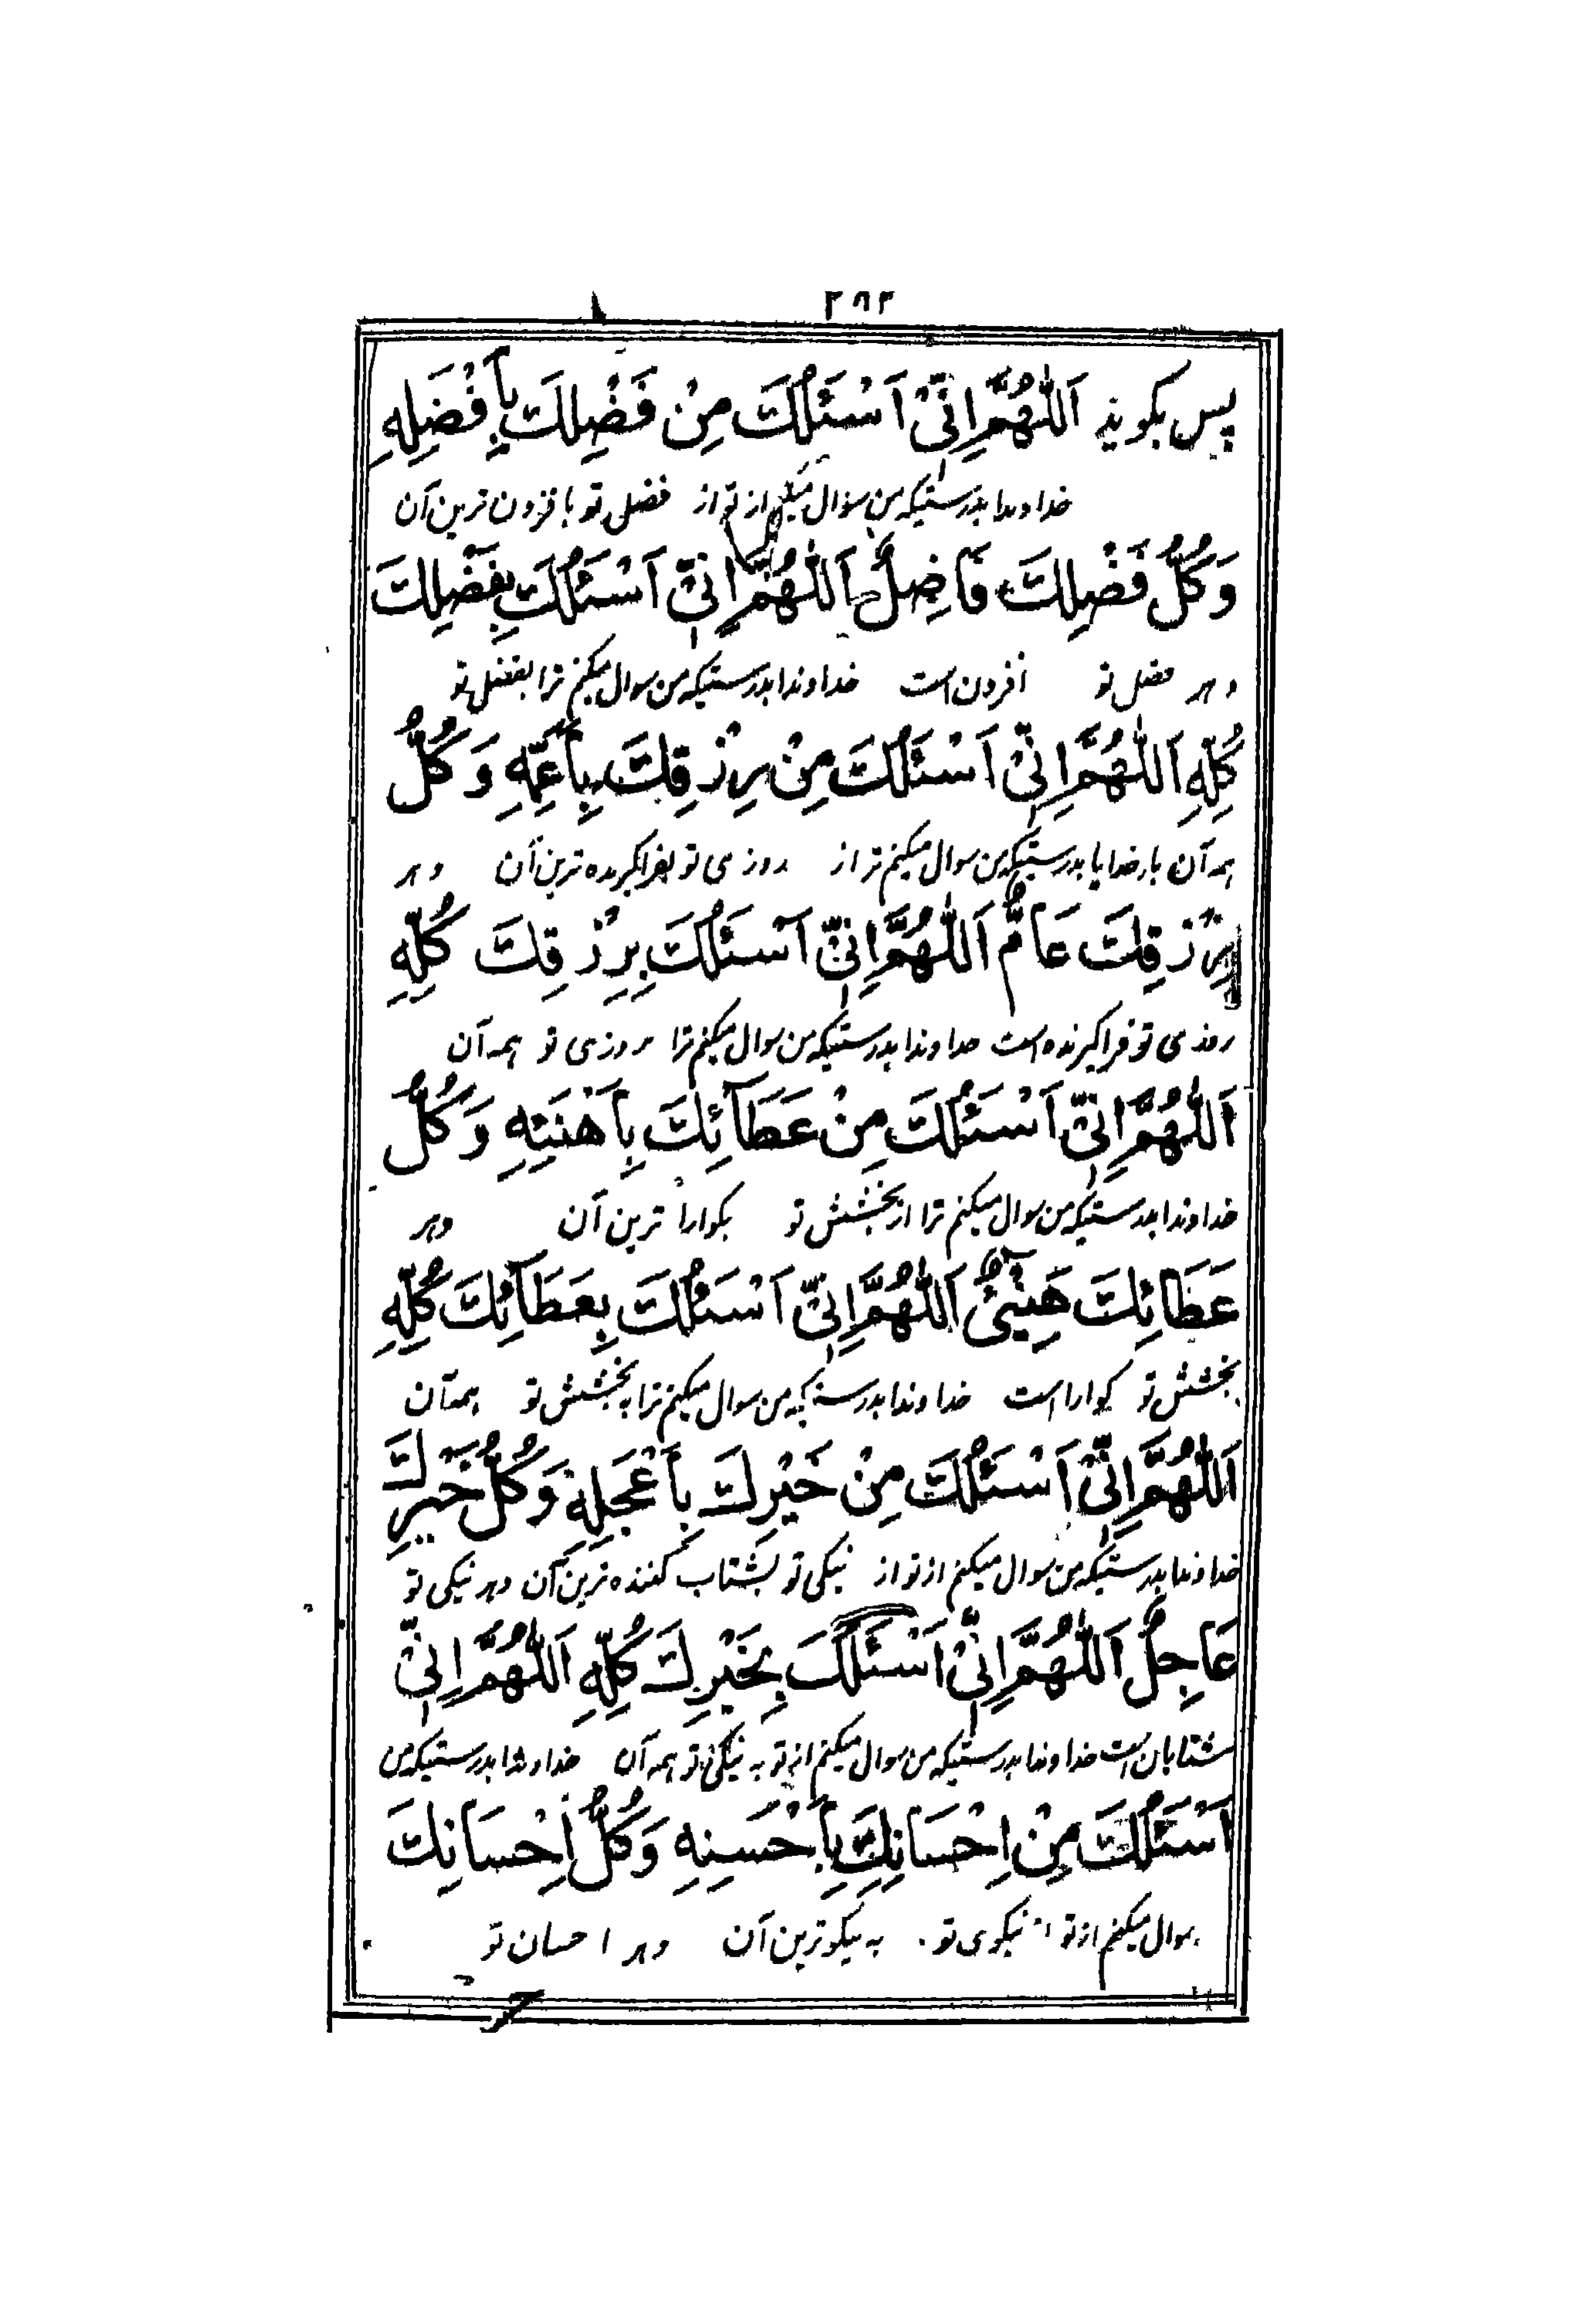 ۲۸۲
پس بکویذ اَللّٰهُمَّ اِنّیْ اَسْئَلُكَ مِنْ فَضْلِكَ بِاَفْضَلِهِ
خداوندا بدرستیکه من سؤال میکنم از تو از فضل تو بافزون ترین آن
وَكُلُّ فَضْلِكَ فَاضِلٌ اَللّٰهُمَّ اِنّیْ اَسْئَلُكَ بِفَضْلِكَ
و هر فضل تو افزون است خداوندا بدرستیکه من سوال میکنم ترا بفضل تو
كُلِّهِ اَللّٰهُمَّ اِنّیْ اَسْئَلُكَ مِنْ رِزْقِكَ بِاَعَمِّهِ وَكُلُّ
همه آن بارخدایا بدرستیکه من سوال میکنم ترا از روزی تو بفراکیرنده ترین آن و هر
رِزْقِكَ عَامٌّ اَللّٰهُمَّ اِنّیْ اَسْئَلُكَ بِرِزْقِكَ كُلِّهِ
روزی تو فراکیرنده است خداوندا بدرستیکه من سوال میکنم ترا بروزی تو همه آن
اَللّٰهُمَّ اِنّیْ اَسْئَلُكَ مِنْ عَطَآئِكَ بِاَهْنَئِهِ وَكُلُّ
خداوندا بدرستیکه من سوال میکنم ترا از بخشش تو بکوارا ترین آن و هر
عَطَائِكَ هَنِیْٓئٌ اَللّٰهُمَّ اِنّیْ اَسْئَلُكَ بِعَطَآئِكَ كُلِّهِ
بخشش تو کوارا است خداوندا بدرستیکه من سوال میکنم ترا به بخشش تو همه آن
اَللّٰهُمَّ اِنّیْ اَسْئَلُكَ مِنْ خَیْرِكَ بِاَعْجَلِهِ وَكُلُّ خَیْرِكَ
خداوندا بدرستیکه من سوال میکنم از تو از نیکی تو بشتاب کننده ترین آن و هر نیکی تو
عَاجِلٌ اَللّٰهُمَّ اِنّیْ اَسْئَلُكَ بِخَیْرِكَ كُلِّهِ اَللّٰهُمَّ اِنّیْ
شتابان است خداوندا بدرستیکه من سوال میکنم از تو به نیکی تو همه آن خداوندا بدرستیکه من
اَسْئَلُكَ مِنْ اِحْسَانِكَ بِاَحْسَنِهِ وَكُلُّ اِحْسَانِكَ
سوال میکنم از تو از نیکوی تو به نیکو ترین آن و هر احسان تو